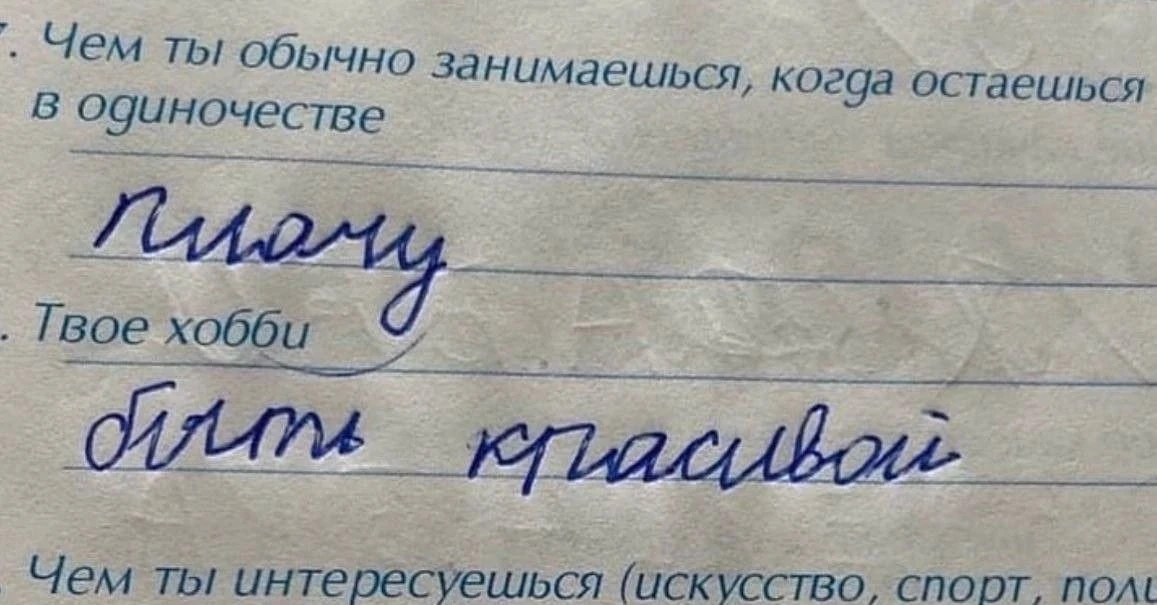 . Чем ты обычно занимаешься, когда остаешься
в одиночестве
плачу
. Твое хобби
быть красивой
Чем ты интересуешься (искусство, спорт, поли